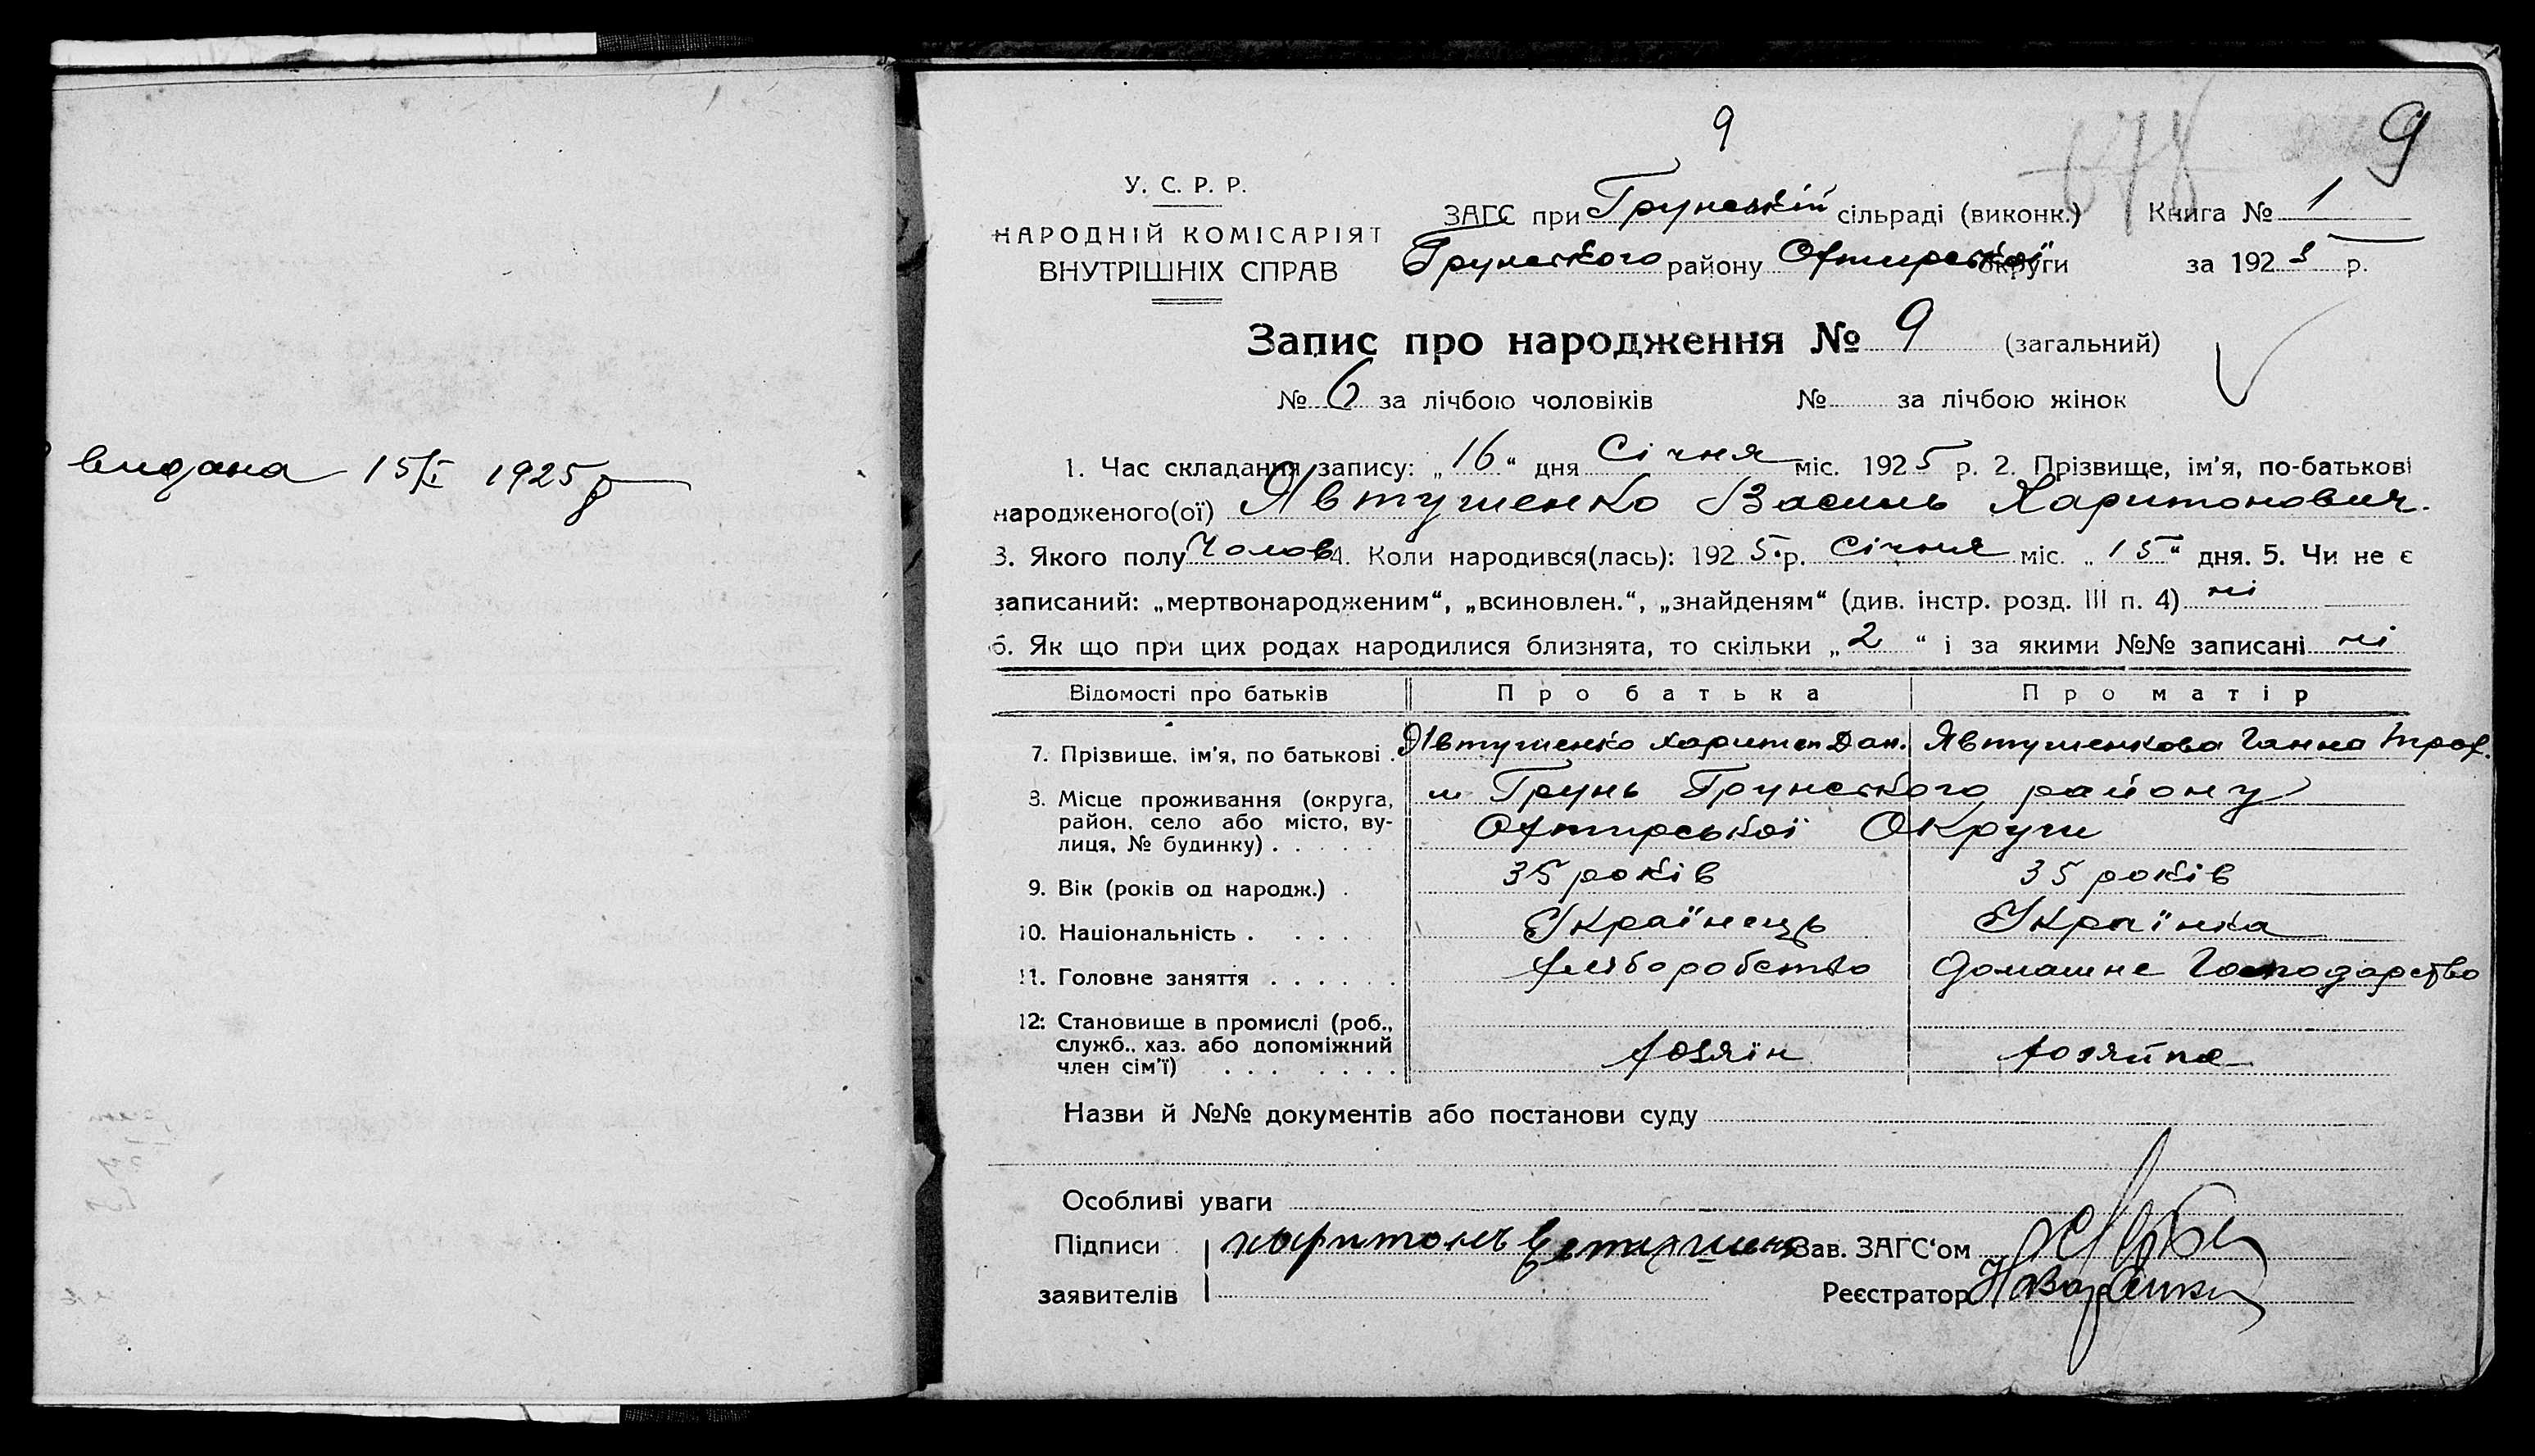 видана 15/I 1925 р
9
9
678
У. С. Р. Р.
НАРОДНІЙ КОМІСАРІЯТ
ВНУТРІШНІХ СПРАВ
ЗАГС при Грунській сільраді (виконк.) Книга № 1
Грунського району Охтирської округи за 1925 р.
Запис про народження № 9 (загальний)
№ 6 за лічбою чоловіків № за лічбою жінок
1. Час складання запису: „16“ дня Січня міс. 1925 р. 2. Прізвище, ім'я, по-батькові
народженого(ої) Явтушенко Василь Харитонович.
3. Якого полу Чолов 4. Коли народився(лась): 1925 р. Січня міс. „15“ дня. 5. Чи не є
записаний: „мертвонародженим“, „всиновлен.“, „знайденям“ (див. інстр. розд. III п. 4) ні
6. Як що при цих родах народилися близнята, то скільки „2“ і за якими №№ записані ні
Відомості про батьків Про батька Про матір
7. Прізвище, ім'я, по батькові . Явтушенко Харитон Дан. Явтушенкова Ганна Троф.
8. Місце проживання (округа, район, село або місто, ву-
лиця, № будинку) . . . . . м Грунь Грунського району
Охтирської Округи
9. Вік (років од народж.) . 35 років 35 років
10. Національність . . . . Українець Українка
11. Головне заняття . . . . . . Хліборобство Домашнє Господарство
12. Становище в промислі (роб.,
служб., хаз. або допоміжний
член сім'ї) . . . . . . . Хозяін Хозяйка
Назви й №№ документів або постанови суду
Особливі уваги
Підписи Харитонъ Зав. ЗАГС'ом
заявителів Реєстратор